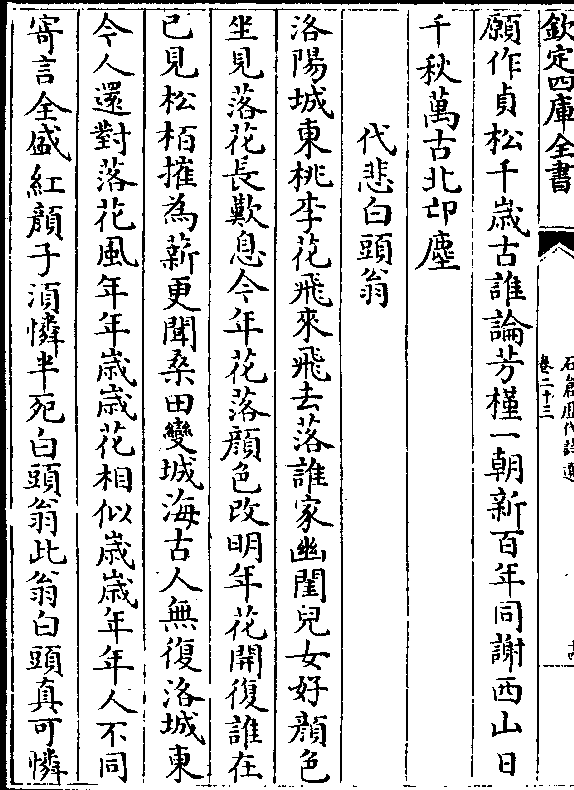 欽定四庫全書
石倉歷代詩選
卷二十三
願作貞松千歳古誰論芳槿一朝新百年同謝西山日
千秋萬古北邙塵
代悲白頭翁
洛陽城東桃李花飛來飛去落誰家幽閨兒女好顔色
坐見落花長歎息今年花落顔色改明年花開復誰在
已見松栢摧為薪更聞桑田變城海古人無復洛城東
今人還對落花風年年歳歳花相似歳歳年年人不同
寄言全盛紅顔子湏憐半死白頭翁此翁白頭真可憐